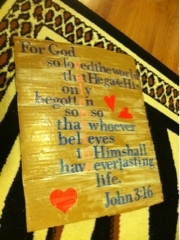 For God
so loved the world
that He gave His
only
begotten
son so
that whoever
believes
in Him shall
have everlasting
life.
John 3:16